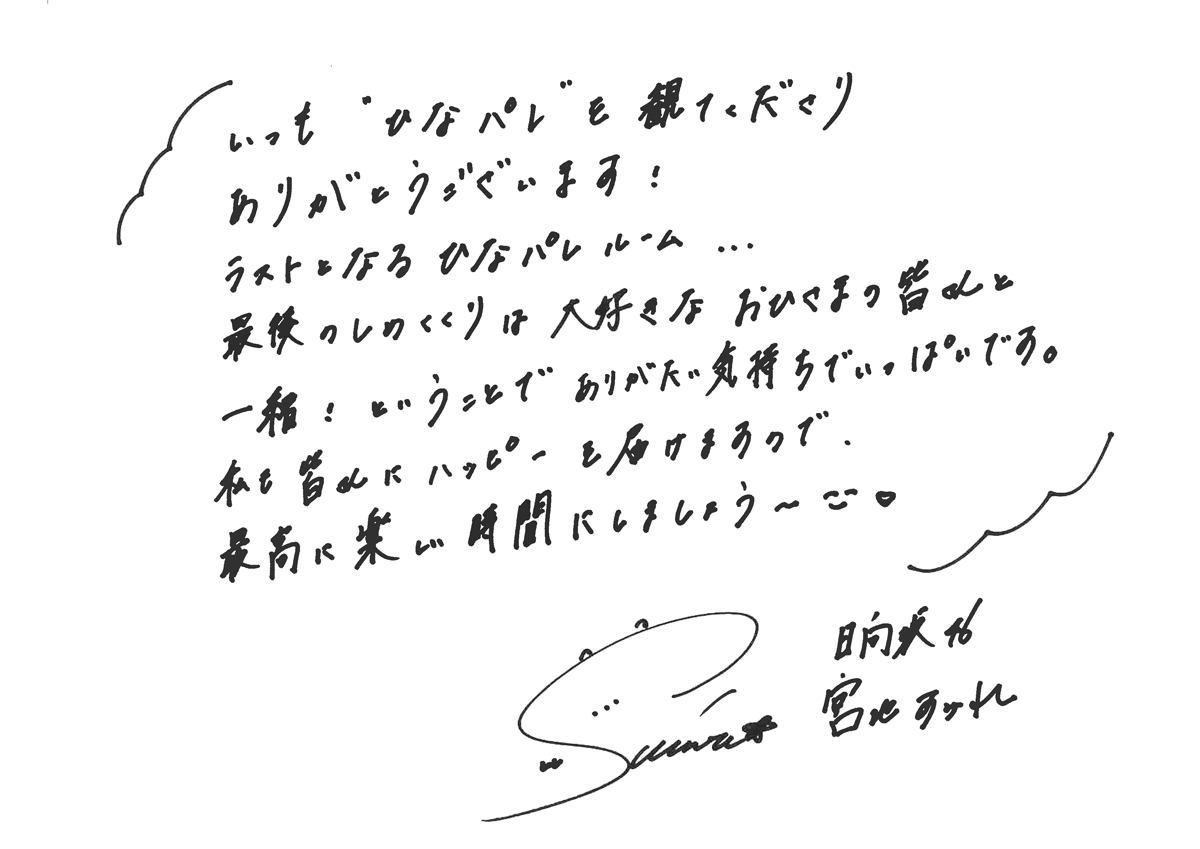 いつも"ひなパレ"を観てくださり
ありがとうございます!
ラストとなるひなパレルーム...
最後のしめくくりは大好きなおひさまの皆さんと
一緒!ということでありがたい気持ちでいっぱいです。
私も皆さんにハッピーを届けますので、
最高に楽しい時間にしましょう〜
日向坂46
宮地すみれ
Sumire